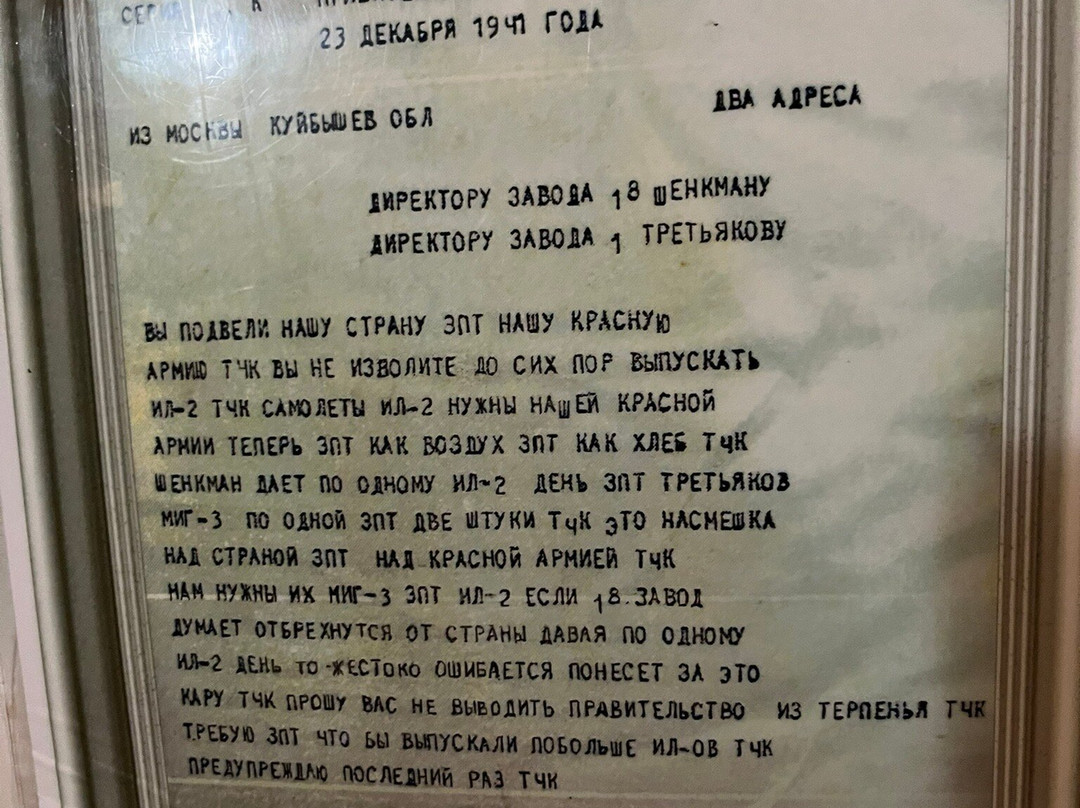 23 ДЕКАБРЯ 1941 ГОДА
ДВА АДРЕСА
ИЗ МОСКВЫ КУЙБЫШЕВ ОБЛ
ДИРЕКТОРУ ЗАВОДА 18 ШЕНКМАНУ
ДИРЕКТОРУ ЗАВОДА 1 ТРЕТЬЯКОВУ
ВЫ ПОДВЕЛИ НАШУ СТРАНУ ЗПТ НАШУ КРАСНУЮ
АРМИЮ ТЧК ВЫ НЕ ИЗВОЛИТЕ ДО СИХ ПОР ВЫПУСКАТЬ
ИЛ-2 ТЧК САМОЛЕТЫ ИЛ-2 НУЖНЫ НАШЕЙ КРАСНОЙ
АРМИИ ТЕПЕРЬ ЗПТ КАК ВОЗДУХ ЗПТ КАК ХЛЕБ ТЧК
ШЕНКМАН ДАЕТ ПО ОДНОМУ ИЛ-2 ДЕНЬ ЗПТ ТРЕТЬЯКОВ
МИГ-3 ПО ОДНОЙ ЗПТ ДВЕ ШТУКИ ТЧК ЭТО НАСМЕШКА
НАД СТРАНОЙ ЗПТ НАД КРАСНОЙ АРМИЕЙ ТЧК
НАМ НУЖНЫ ИХ МИГ-3 ЗПТ ИЛ-2 ЕСЛИ 18.ЗАВОД
ДУМАЕТ ОТБРЕХНУТСЯ ОТ СТРАНЫ ДАВАЯ ПО ОДНОМУ
ИЛ-2 ДЕНЬ ТО ЖЕСТОКО ОШИБАЕТСЯ ПОНЕСЕТ ЗА ЭТО
КАРУ ТЧК ПРОШУ ВАС НЕ ВЫВОДИТЬ ПРАВИТЕЛЬСТВО ИЗ ТЕРПЕНЬЯ ТЧК
ТРЕБУЮ ЗПТ ЧТО БЫ ВЫПУСКАЛИ ПОБОЛЬШЕ ИЛ-ОВ ТЧК
ПРЕДУПРЕЖДАЮ ПОСЛЕДНИЙ РАЗ ТЧК